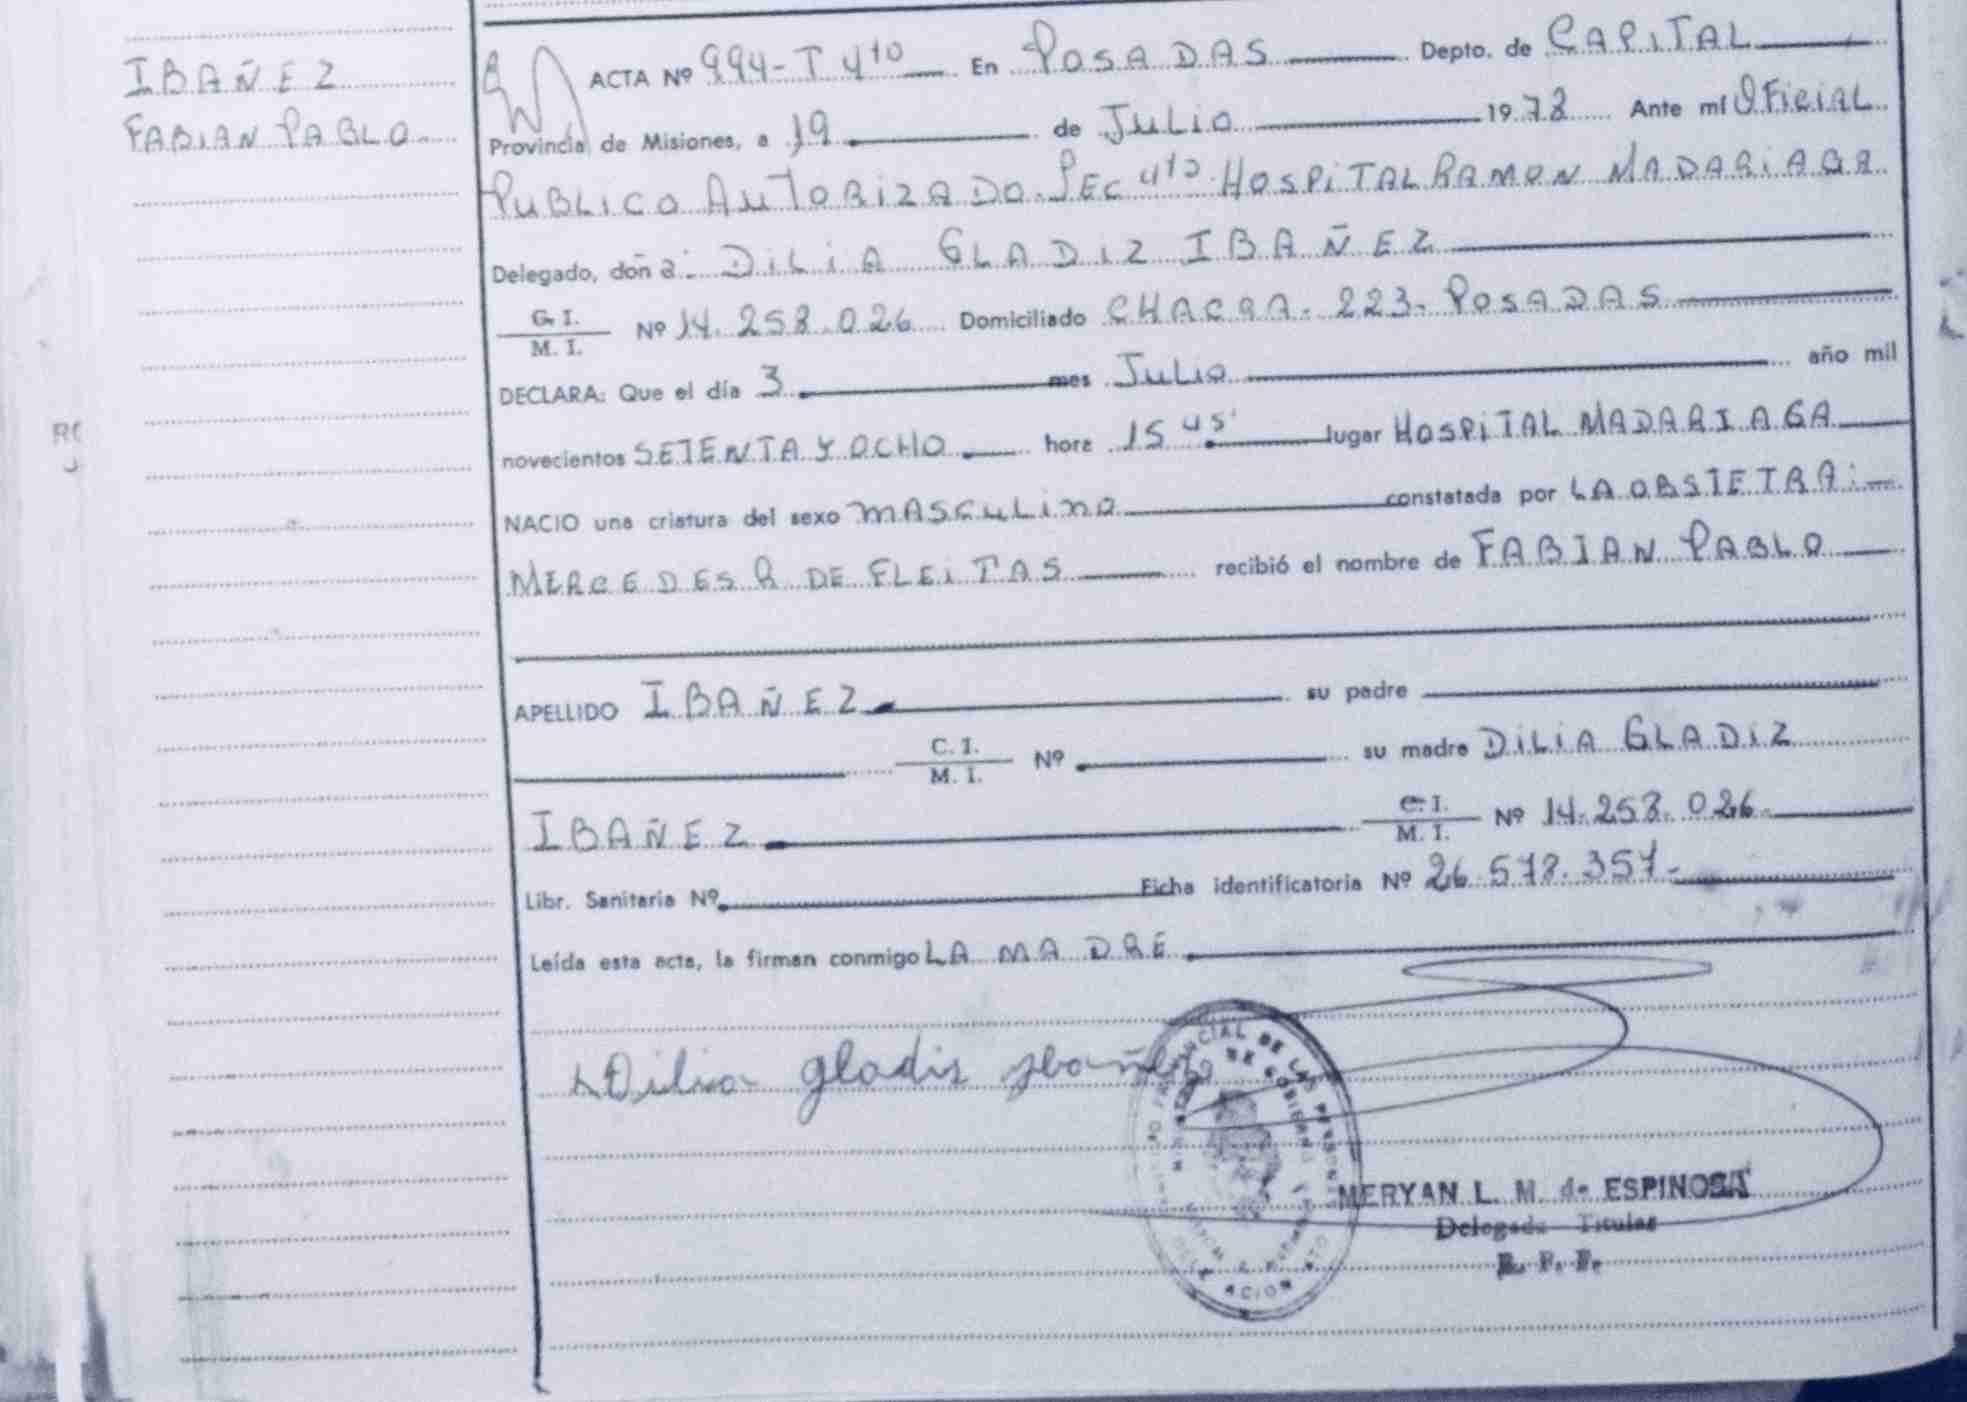 IBAÑEZ
FABIAN PABLO
ACTA Nº 994-T 4to En POSADAS Depto. de CAPITAL
Provincia de Misiones, a 19 de JULIO 1978 Ante mí OFICIAL
PUBLICO AUTORIZADO SEC 4to HOSPITAL RAMON MADARIAGA
Delegado, doña: DILIA GLADIZ IBAÑEZ
C. I.
M. I. Nº 14.258.026 Domiciliado CHACRA - 223 - POSADAS
DECLARA: Que el día 3 mes JULIO año mil
novecientos SETENTA Y OCHO hora 15 45' lugar HOSPITAL MADARIAGA
NACIO una criatura del sexo MASCULINO constatada por LA OBSTETRA:
MERCEDES R DE FLEITAS recibió el nombre de FABIAN PABLO
APELLIDO IBAÑEZ su padre
C. I.
M. I. Nº su madre DILIA GLADIZ
IBAÑEZ C. I.
M. I. Nº 14.258.026-
Libr. Sanitaria Nº Ficha identificatoria Nº 26.578.357-
Leída esta acta, la firman conmigo LA MADRE
Dilia gladis Ibañez
MERYAN L. M. de ESPINOSA
Delegada Titular
R. P. P.